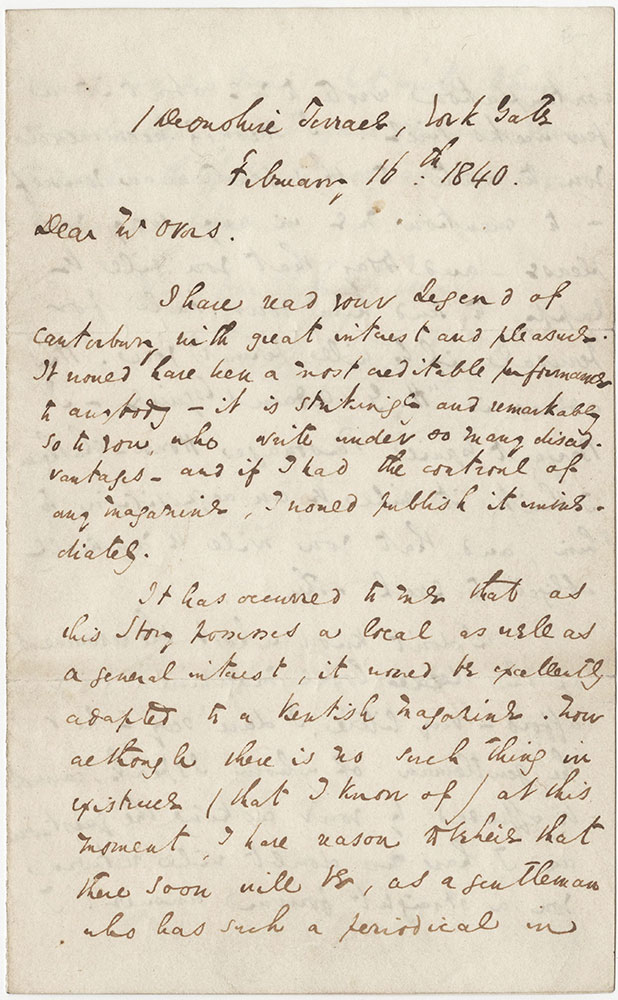 1 Devonshire Terrace, York Gate
February 16th. 1840.
Dear Mr Overs.
I have read your Legend of
Canterbury with great interest and pleasure.
It would have been a most creditable performance
to anybody – it is strikingly and remarkably
so to you, who write under so many disad-
vantages – and if I had the controul of
any magazine, I would publish it imme-
diately.
It has occurred to me that as
this Story possesses a local as well as
a general interest, it would be excellently
adapted to a Kentish magazine. Now
although there is no such thing in
existence (that I know of) at this
moment, I have reason to believe that
there soon will be, as a gentleman
who has such a periodical in